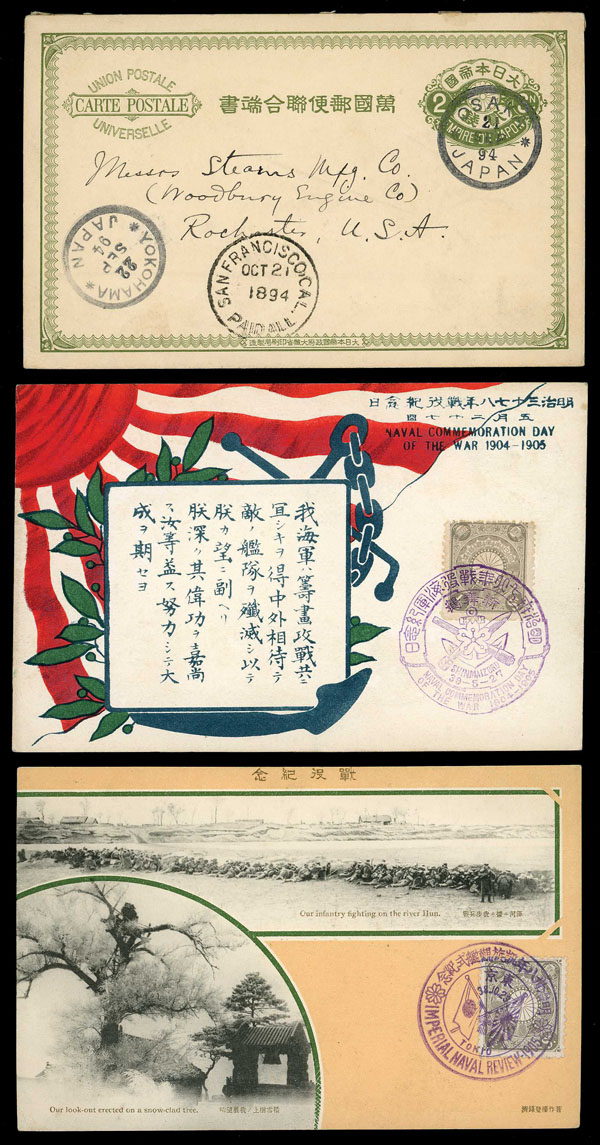 UNION POSTALE
CARTE POSTALE
UNIVERSELLE
書端合聯便郵國萬
國帝本日大
2
EMPIRE DU JAPON
OSAKA
21
94
JAPAN
Messrs Stearns Mfg. Co.
(Woodbury Engine Co)
Rochester, U.S.A.
YOKOHAMA
22
SEP
94
JAPAN
SAN FRANCISCO, CAL.
OCT 21
1894
PAID ALL
日念紀役戰年八七十三治明
日七十二月五
NAVAL COMMEMORATION DAY
OF THE WAR 1904-1905
我海軍ハ籌畫攻戰共ニ
宜シキヲ得中外相待テ
敵ノ艦隊ヲ殲滅シ以テ
朕カ望ニ副ヘリ
朕深ク其偉功ヲ嘉尚
ス汝等益々努力シテ大
成ヲ期セヨ
39-5-27
NAVAL COMMEMORATION DAY
OF THE WAR 1904-1905
念紀役戰
Our infantry fighting on the river Hun.
Our look-out erected on a snow-clad tree.
東京
TOKIO
IMPERIAL NAVAL REVIEW 1905